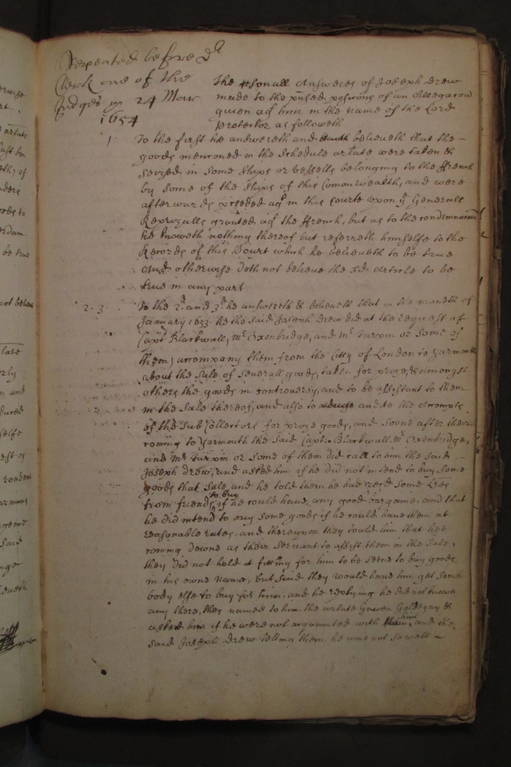 Repeated before Dr
Clerk one of the
Judges 24 May
1654
The psonall Answeres of Joseph Drew
made to the psed posicons of an Allegacon
given agt him in the name of the Lord
Protector as followeth
1 To the first he answereth and beleeveth that the
goods menconed in the Schedule arlate were taken &
seized in some Shipps or vessells belonging to the ffrench
by some of the Shipps of this Comonwealth, and were
afterwards pceeded agt in this Courte upon ye Generall
Reprizalls granted agt the ffrench, but as to the condemnacon
he knoweth nothing thereof but referreth himselfe to the
Records of this Court which he beleeveth to be true
And otherwise doth not beleeve the sd article to be
true in any part
2. 3 To the 2d and 3d he answereth & beleeveth that in the moneth of
January 1653 he the said Joseph Drew did at the request of
Capt Blackwall, Mr Oxenbridge, and Mr Turpin or some of
them accompany them from the City of London to Yarmouth
about the Sale of severall goods, taken for prize, & amongst
others the goods in controversy, and to be assistant to them
in the Sale thereof, and also to and to the Accompts
of the Sub Collectors for prize goods, and soone after theire
coming to Yarmouth the said Captn Blackwall, Mr Oxenbridge,
and Mr Turpin or some of them did call to him the said
Joseph Drew, and asked him if he did not intend to buy some
goods that Sale, and he told them he had recd some Lres
from friends to buy if he could have any good bargaine and that
he did intend to buy some goods if he could have them at
reasonable rates. and thereupon they tould him that hee
coming downe as there Servant to assist them in the Sale,
they did not hold it fitting for him to be seene to buy goods
in his owne name, but said they would have him get some
body else to buy for him. and he replying he did not know
any there, they named to him the arlate Gowen Goldegay &
asked him if he were not acquainted with him, and the
said Joseph Drew telling them he was not so well